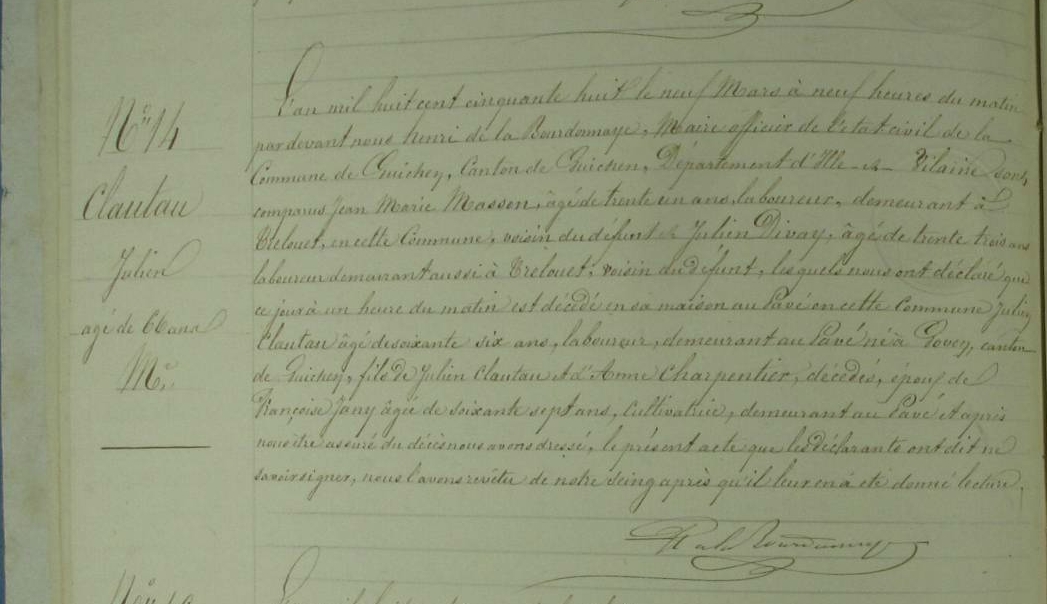 Nº 14
Clautau
Julien
agé de 66 ans
Mr.
L'an mil huit cent cinquante huit le neuf Mars à neuf heures du matin
par devant nous henri de la Bourdonnaye, Maire officier de l'état civil de la
Commune de Guichen, Canton de Guichen, Département d'Ille et Vilaine sont
comparus Jean Marie Masson, âgé de trente un ans, laboureur, demeurant à
Trelouet, en cette Commune, voisin du défunt et Julien Divay, âgé de trente trois ans
laboureur demeurant aussi à Trelouet, voisin du défunt, lesquels nous ont déclaré que
ce jour à un heure du matin est décédé en sa maison au Pavé en cette Commune Julien
Clautau âgé de soixante six ans, laboureur, demeurant au Pavé né à Goven, canton
de Guichen, fils de Julien Clautau et d'Anne Charpentier, décédés, époux de
Françoise Jany âgée de soixante sept ans, Cultivatrice, demeurant au Pavé Et après
nous être assuré du décès nous avons dressé, le présent acte que les déclarants ont dit ne
savoir signer, nous l'avons revêtu de notre seing après qu'il leur en à été donné lecture.